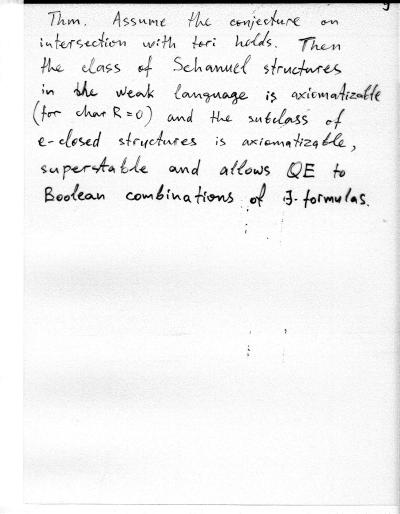 Thm. Assume the conjecture on
intersection with tori holds. Then
the class of Schanuel structures
in the weak language is axiomatizable
(for char R = 0) and the subclass of
e-closed structures is axiomatizable,
superstable and allows QE to
Boolean combinations of ∃-formulas.